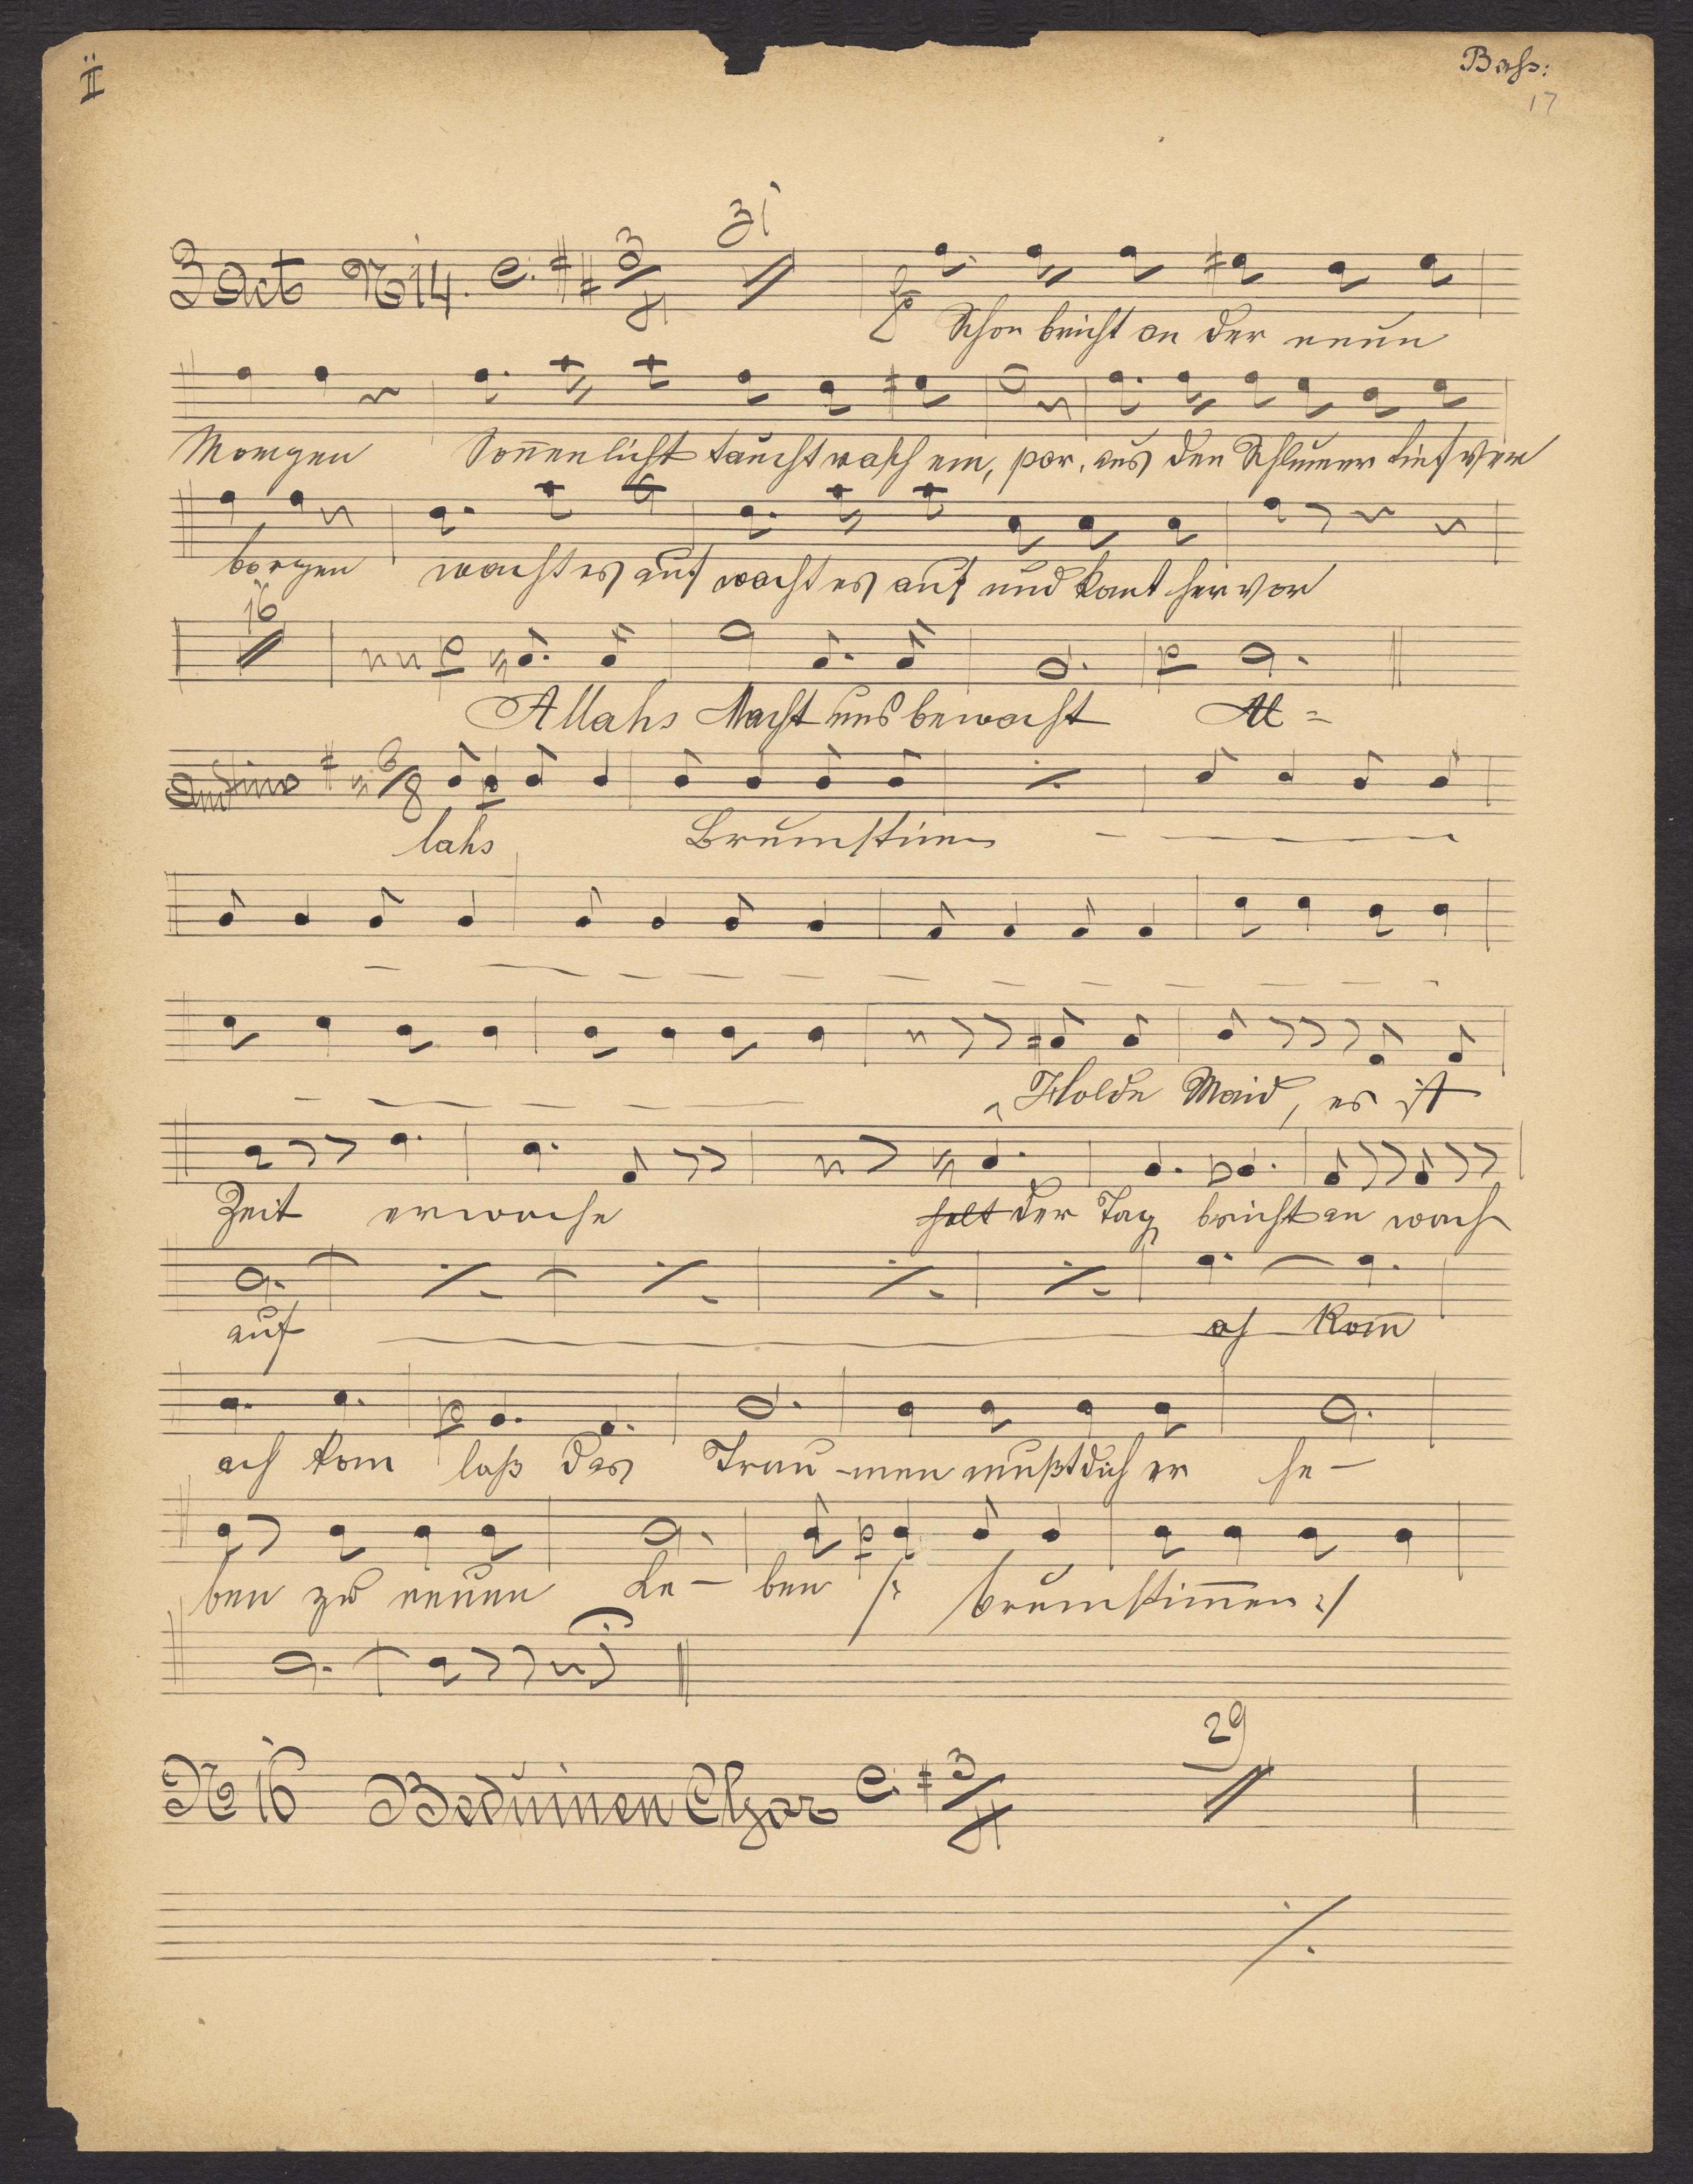 II
Bass:
17
3 Act No 14. 3/4 31
Schon bricht an der neue
Morgen Sonnenlicht taucht rasch em, por, aus den Schlumer tief ver
borgen wacht es auf wacht es auf und komt hervor
16
Allahs Macht uns bewacht Al =
Andino 6/8
lahs Brumstimen
Holde Maid, es ist
Zeit erwache der Tag bricht an wach
auf ach kom̅
ach kom laß das Träu-men mußt dich er he-
ben zu neuen Le- ben /: brumstim̅en :/
No 16 Beduinen Chor 3/4 29